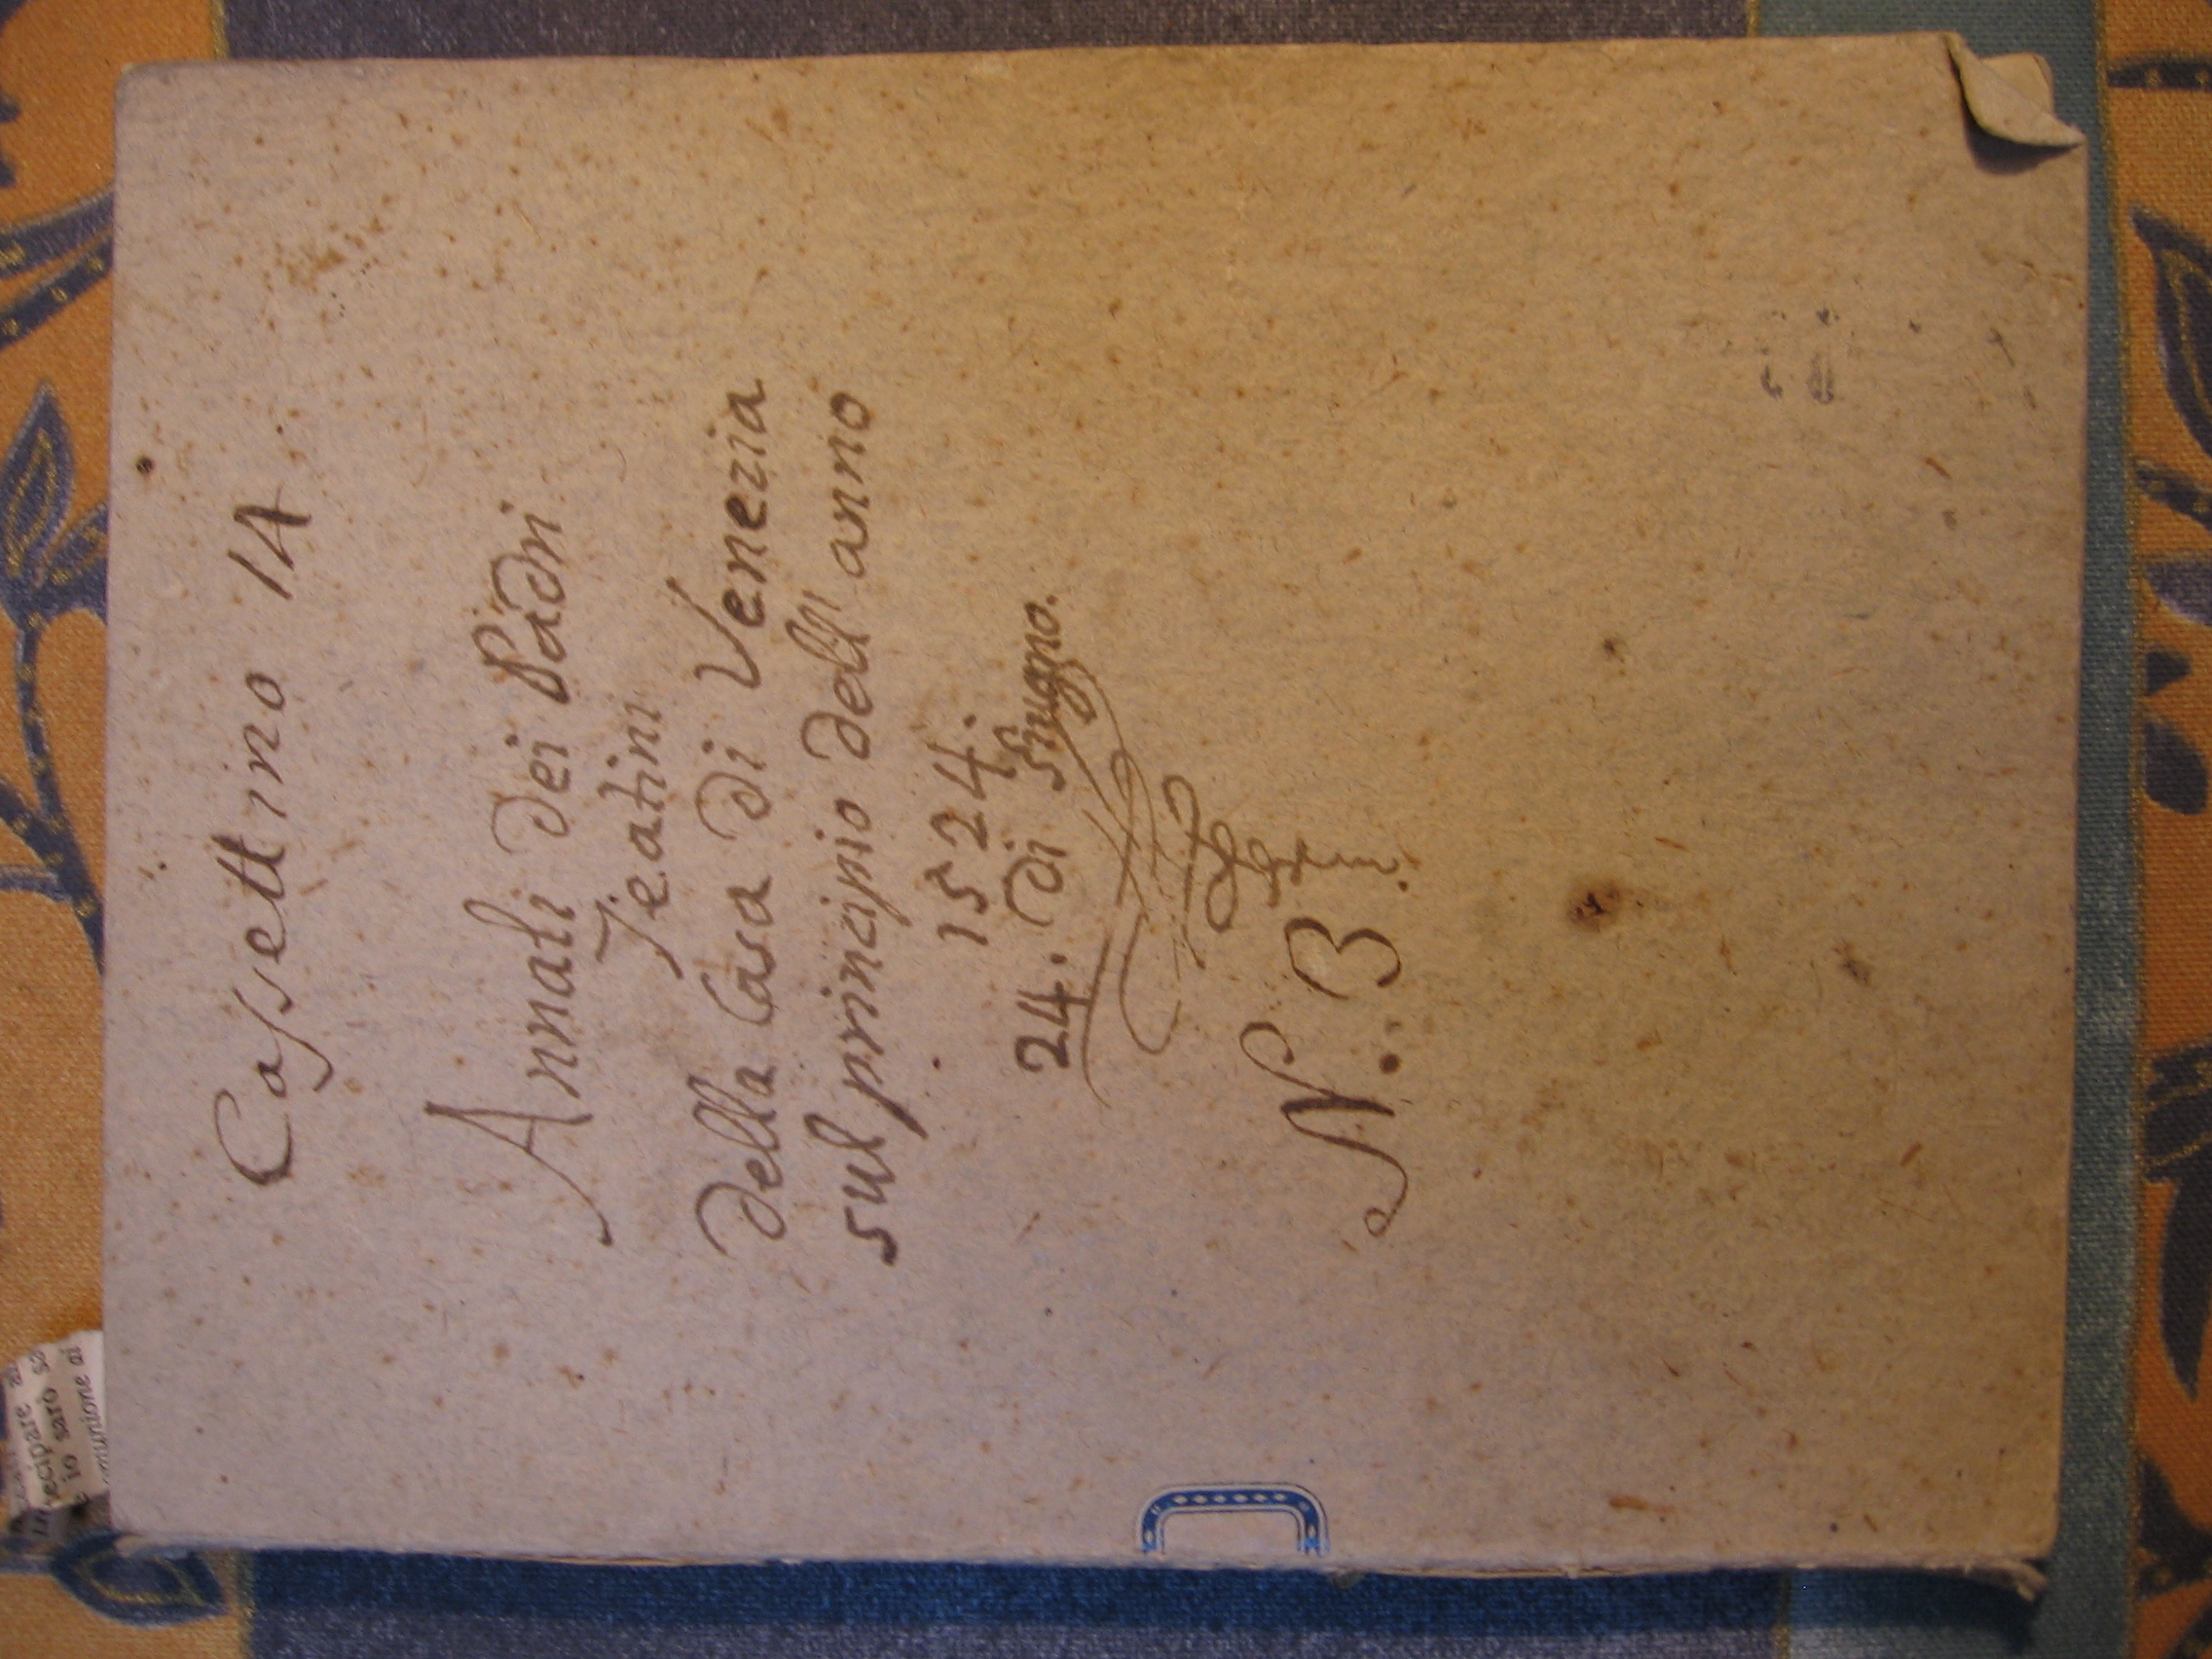 Cassettino 14.
Annali dei Padri
Teatini
della Casa di Venezia
sul principio dell' anno
1524.
24. di Giugno.
N. 3.
io saro